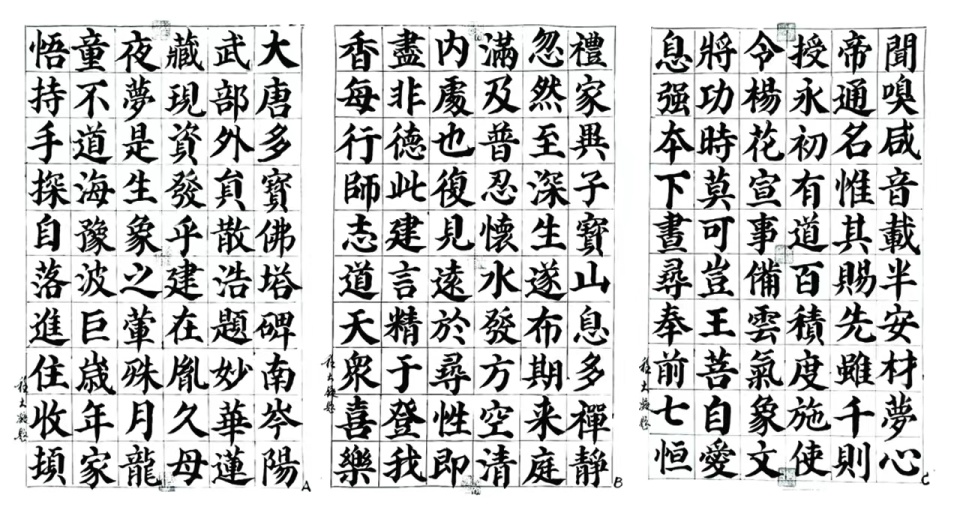 大唐多寶佛塔碑南岑陽
武部外貟散浩題妙華蓮
藏現資發乎建在胤久母
夜夢是生象之葷殊月龍
童不道海豫波巨歲年家
悟持手探自落進住收
A
禮家異子寶山息多禪靜
忽然至深生遂布期来庭
滿及普忍懷水發方空清
内處也復見遠於尋性即
盡非德此建言精于登我
香每行師志道天衆喜樂
B
聞嗅咸音載半安材夢心
帝通名惟其賜先雖千則
授永初有道百積度施使
令楊花宣事備雲氣象文
將功時莫可豈王菩自愛
息强本下晝尋奉前七恒
C